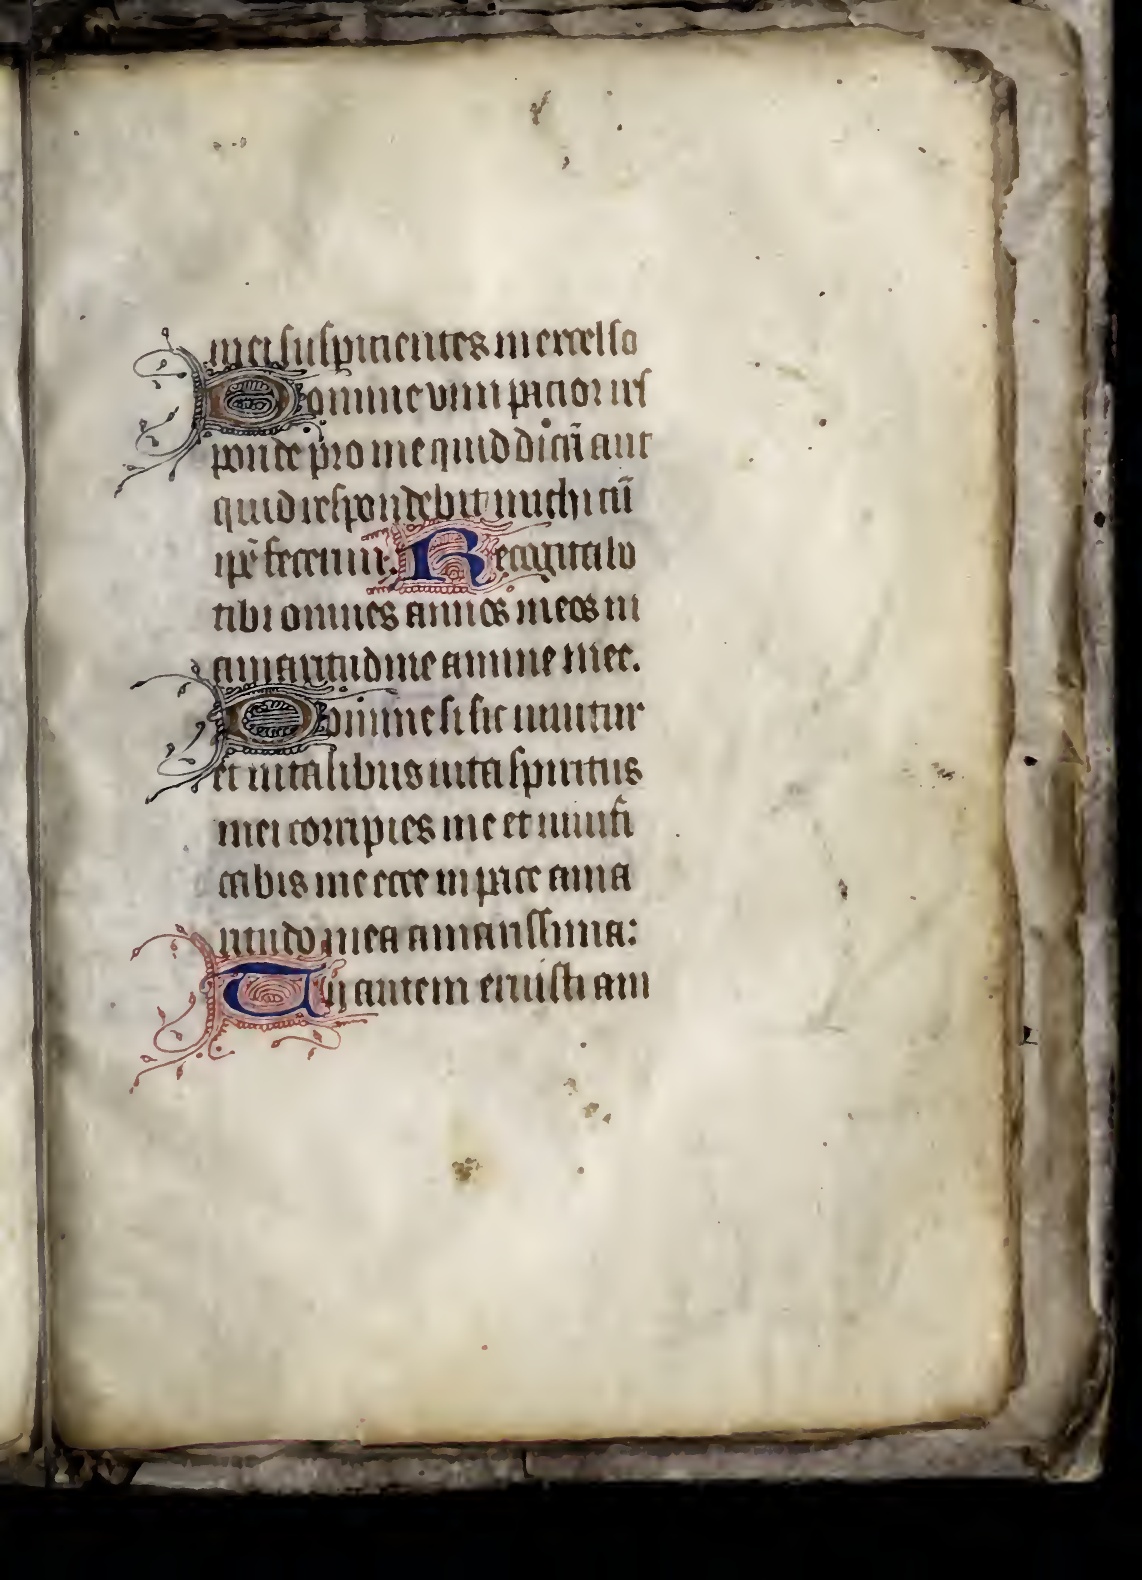 mei suspicientes in excelso
Domine vim patior res
ponde pro me quid dicā aut
quid respondebit michi cū
ip̄e fecerim. Recogitabo
tibi omnes annos meos in
amaritudine anime mee.
Domine si sic uiuitur
et in talibus uita spiritus
mei corripies me et uiuifi
cabis me ecce in pace ama
ritudo mea amarissima:
Tu autem eruisti ani